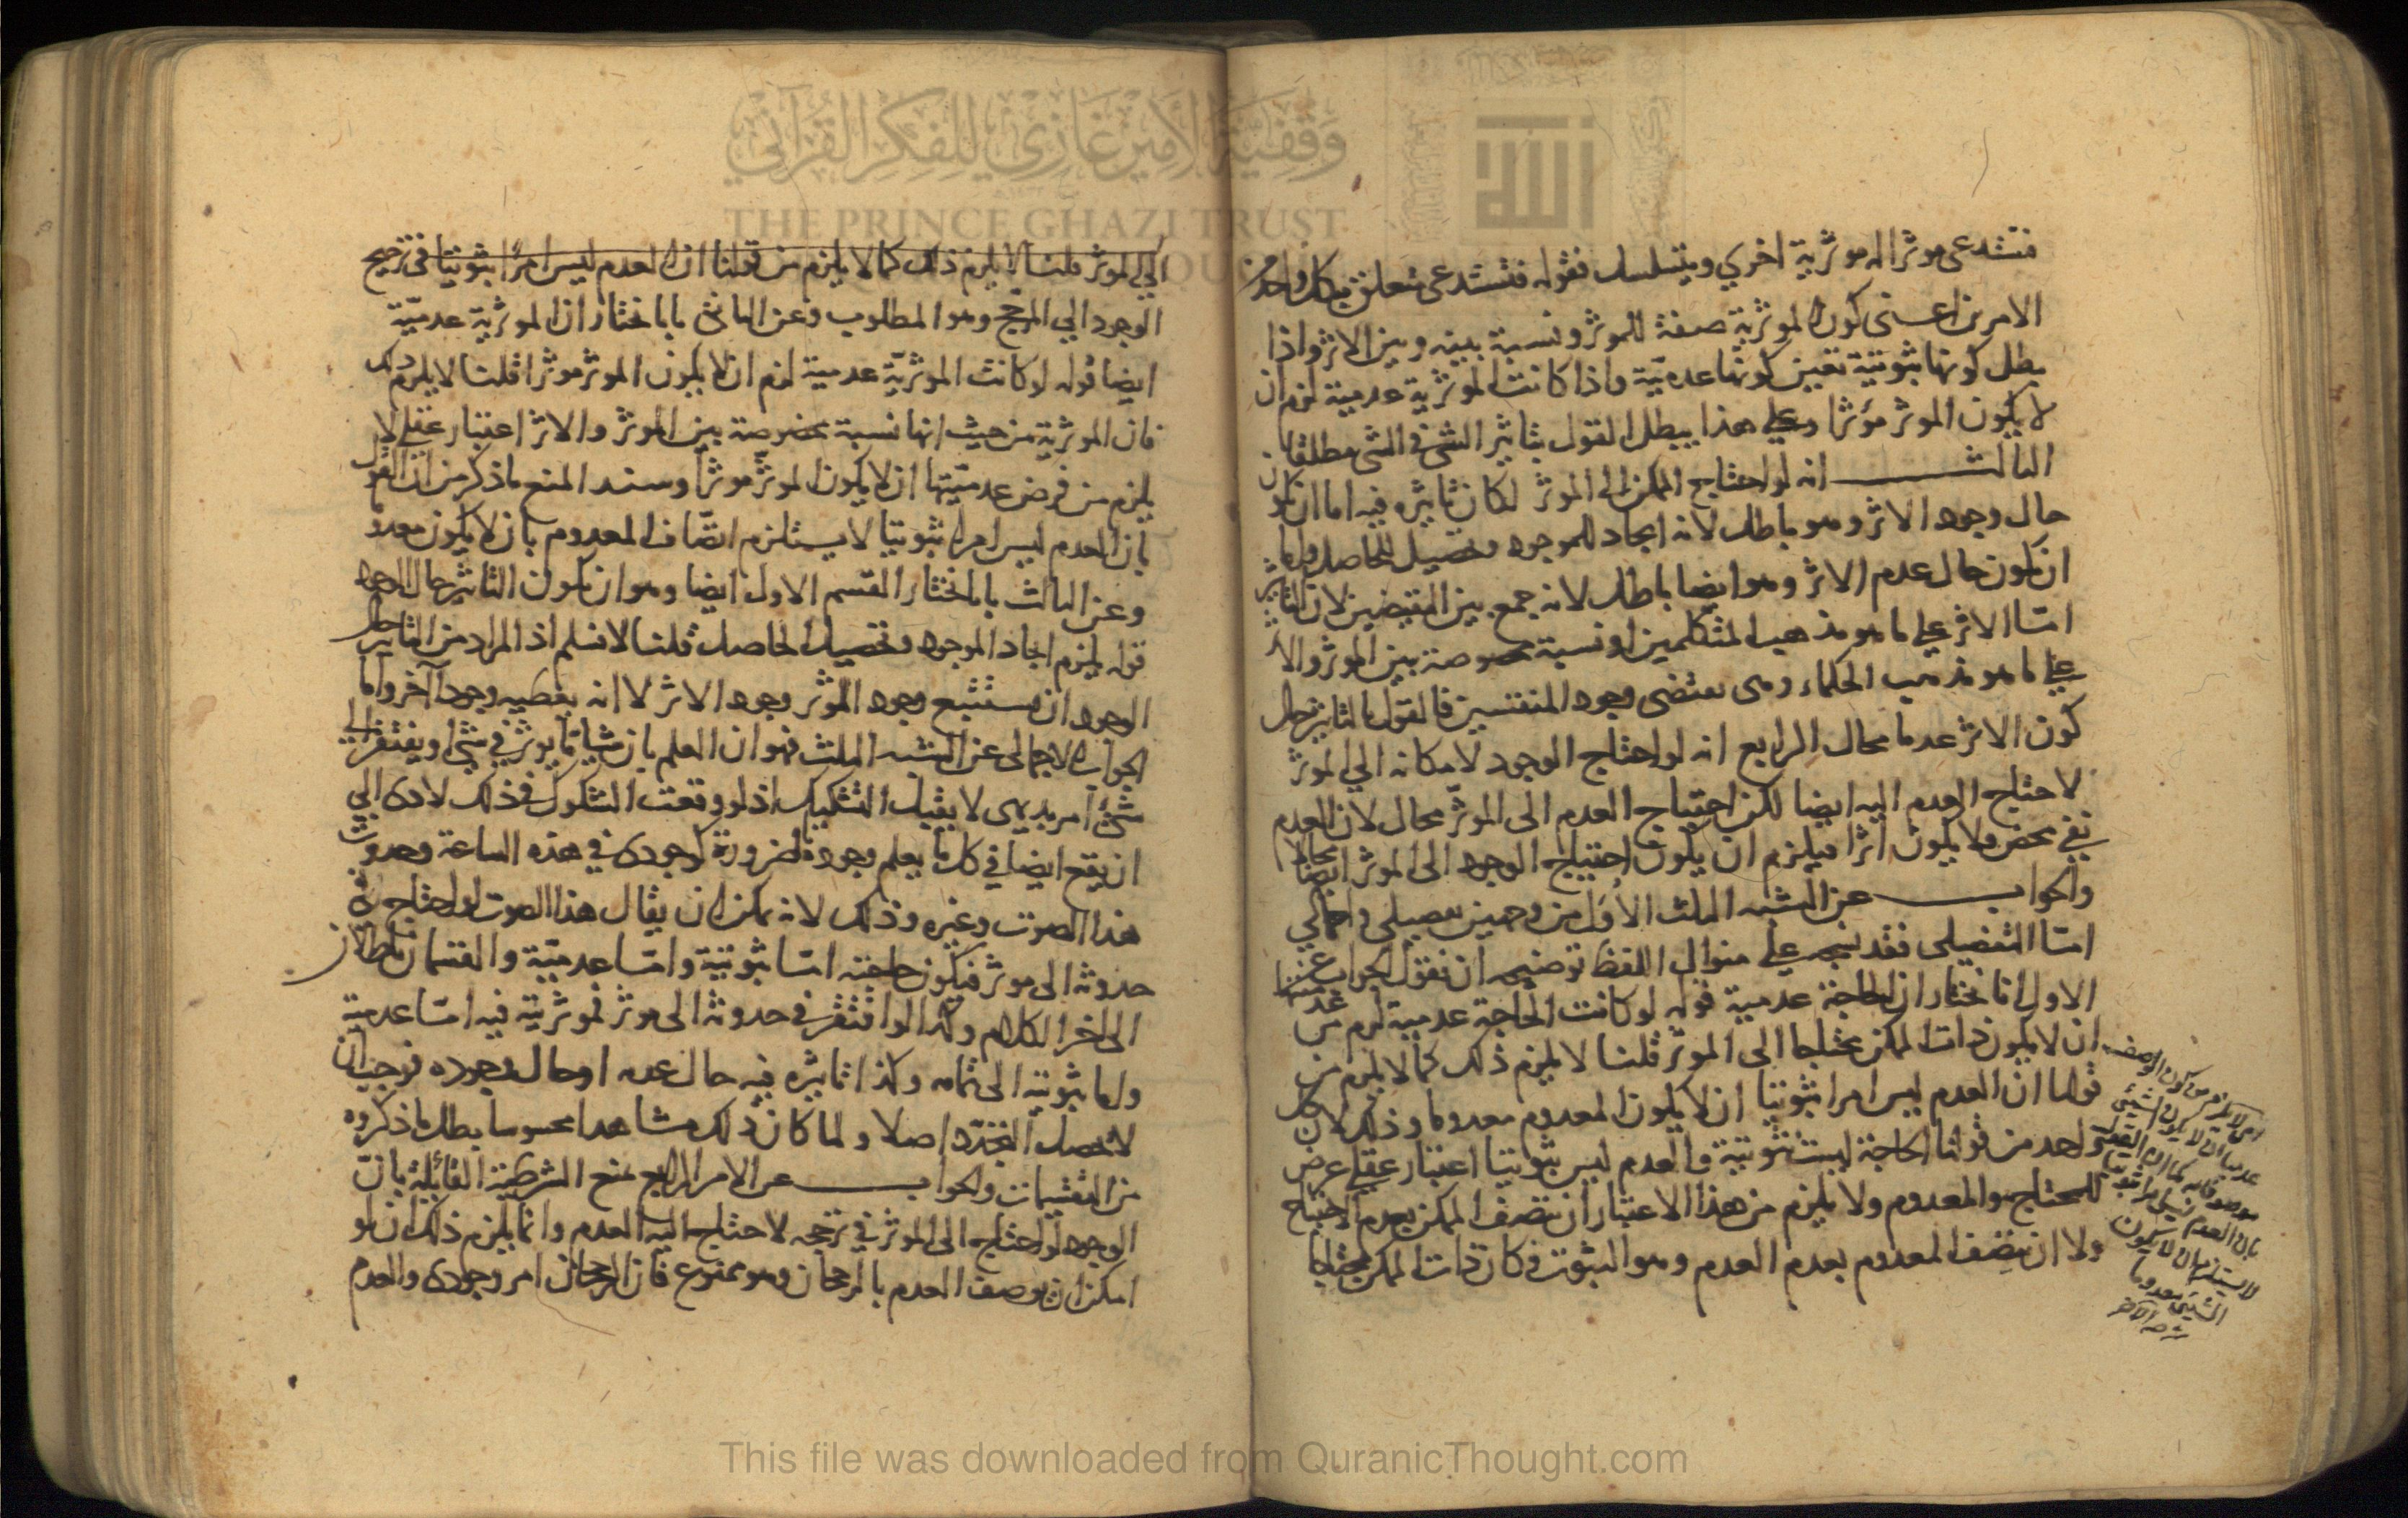 فتستدعى موثرا له موثرية اخري ويتسلسل فقوله فتستدعى متعلق بكل واحد من
الامرين اعنى كون الموثرية صفة للموثر ونسبة بينه وبين الاثر واذا
بطل كونها ثبوتية تعين كونها عدمية واذا كانت الموثرية عدمية لزم ان
لا يكون الموثر مؤثرا وعلى هذا يبطل القول بتاثير الشئ في الشئ مطلقا
الثالث انه لو احتاج الممكن الى الموثر لكان تاثيره فيه اما ان يكون
حال وجود الاثر وهو باطل لانه ايجاد للموجود وتحصيل للحاصل واما
ان يكون حال عدم الاثر وهو ايضا باطل لانه جمع بين النقيضين لان التاثير
امّا الاثر على ما هو مذهب المتكلمين او نسبة مخصوصة بين الموثر والاثر
على ما هو مذهب الحكماء وهى تقتضى وجود المنتسبين فالقول بالتاثير حال
كون الاثر عدما محال الرابع انه لو احتاج الوجود لامكانه الي الموثر
لاحتاج العدم اليه ايضا لكن احتياج العدم الى الموثّر محال لان العدم
نفي محض ولا يكون اثرا فيلزم ان يكون احتياج الوجود الى الموثر ايضا محالا
والجواب عن الشبه الثلث الأُوَل من وجهين تفصيلى واجمالي
امّا التفصيلى فقد على منوال اللفظ توضيحه ان نقول الجواب عن
الاول انا نختار ان الحاجة عدمية قوله لو كانت الحاجة عدمية لزم من
ان لا يكون ذات الممكن محتاجا الى الموثّر قلنا لا يلزم ذلك كما لا يلزم من
قولنا ان العدم ليس امرا ثبوتيا ان لا يكون المعدوم معدوما وذلك لان كل
واحد من قولنا الحاجة ليست ثبوتية والعدم ليس ثبوتيا اعتبار عقلي عرض
للمحتاج والمعدوم ولا يلزم من هذا الاعتبار ان يتصف الممكن بعدم الاحتياج
ولا ان يتصف المعدوم بعدم العدم وهو الثبوت فكان ذات الممكن محتاجا
اى لا يلزم من كون الوصف
عدميا ان لا يكون الشيئ
موصوفا به كما ان القول
بان العدم ليس امرا ثبوتيا
لا يستلزم ان لا يكون
الشيئ معدوما
الي الموثر قلنا لا يلزم ذلك كما لا يلزم من قولنا ان العدم ليس امرًا ثبوتيا في ترجيح
الوجود الي المرجّح وهو المطلوب وعن الثانى بانا نختار ان الموثرية عدميّة
ايضا قوله لو كانت الموثريّة عدمية لزم ان لا يكون الموثر موثرا قلنا لا يلزم ذلك
فان الموثرية من حيث انها نسبة مخصوصة بين الموثر والاثر اعتبار عقلي لا
يلزم من فرض عدميّتها ان لا يكون الموثّر موثرا وسند المنع ما ذكر من ان القول
بان العدم ليس امرا ثبوتيا لا يستلزم اتصّاف المعدوم بان لا يكون معدوما
وعن الثالث بانا نختار القسم الاول ايضا وهو ان يكون التاثير حال الوجود
قوله يلزم ايجاد الموجود وتحصيل الحاصل قلنا لا نسلم اذ المراد من التاثير حال
الوجود ان يستتبع وجود الموثر وجود الاثر لا انه يعطيه وجودا آخر واما
الجواب الاجمالى عن الشبه الثلث فهو ان العلم بان شيا مّا يوثر في شئ او يفتقر الى
شئ امر بديهى لا يقبل التشكيك اذ لو وقعت الشكوك في ذلك لادى الي
ان يقع ايضا في كل ما يعلم وجوده ضرورة كوجودى في هذه الساعة وحدوث
هذا الصوت وغيره وذلك لانه يمكن ان يقال هذا الصوت لو احتاج في
حدوثه الى موثر فيكون حاجته امّا ثبوتية وامّا عدميّة والقسمان باطلان
الى اخر الكلام وكذا لو افتقر في حدوثه الى موثر فموثريّة فيه امّا عدمية
واما ثبوتية الى تمامه وكذا تاثيره فيه حال عدمه او حال وجوده فوجب ان
لا يحصل التجدّد اصلا ولما كان ذلك مشاهدا محسوسا بطل ما ذكروه
من التقسيمات والجواب عن الامر الرابع منع الشرطية القائلة بانّ
الوجود لو احتاج الى الموثر في ترجحه لاحتاج اليه العدم وانما يلزم ذلك ان لو
امكن ان يوصف العدم بالرجحان وهو ممنوع فان الرجحان امر وجودى والعدم
وقفية الأمير غازي للفكر القرآني
THE PRINCE GHAZI TRUST
This file was downloaded from QuranicThought.com